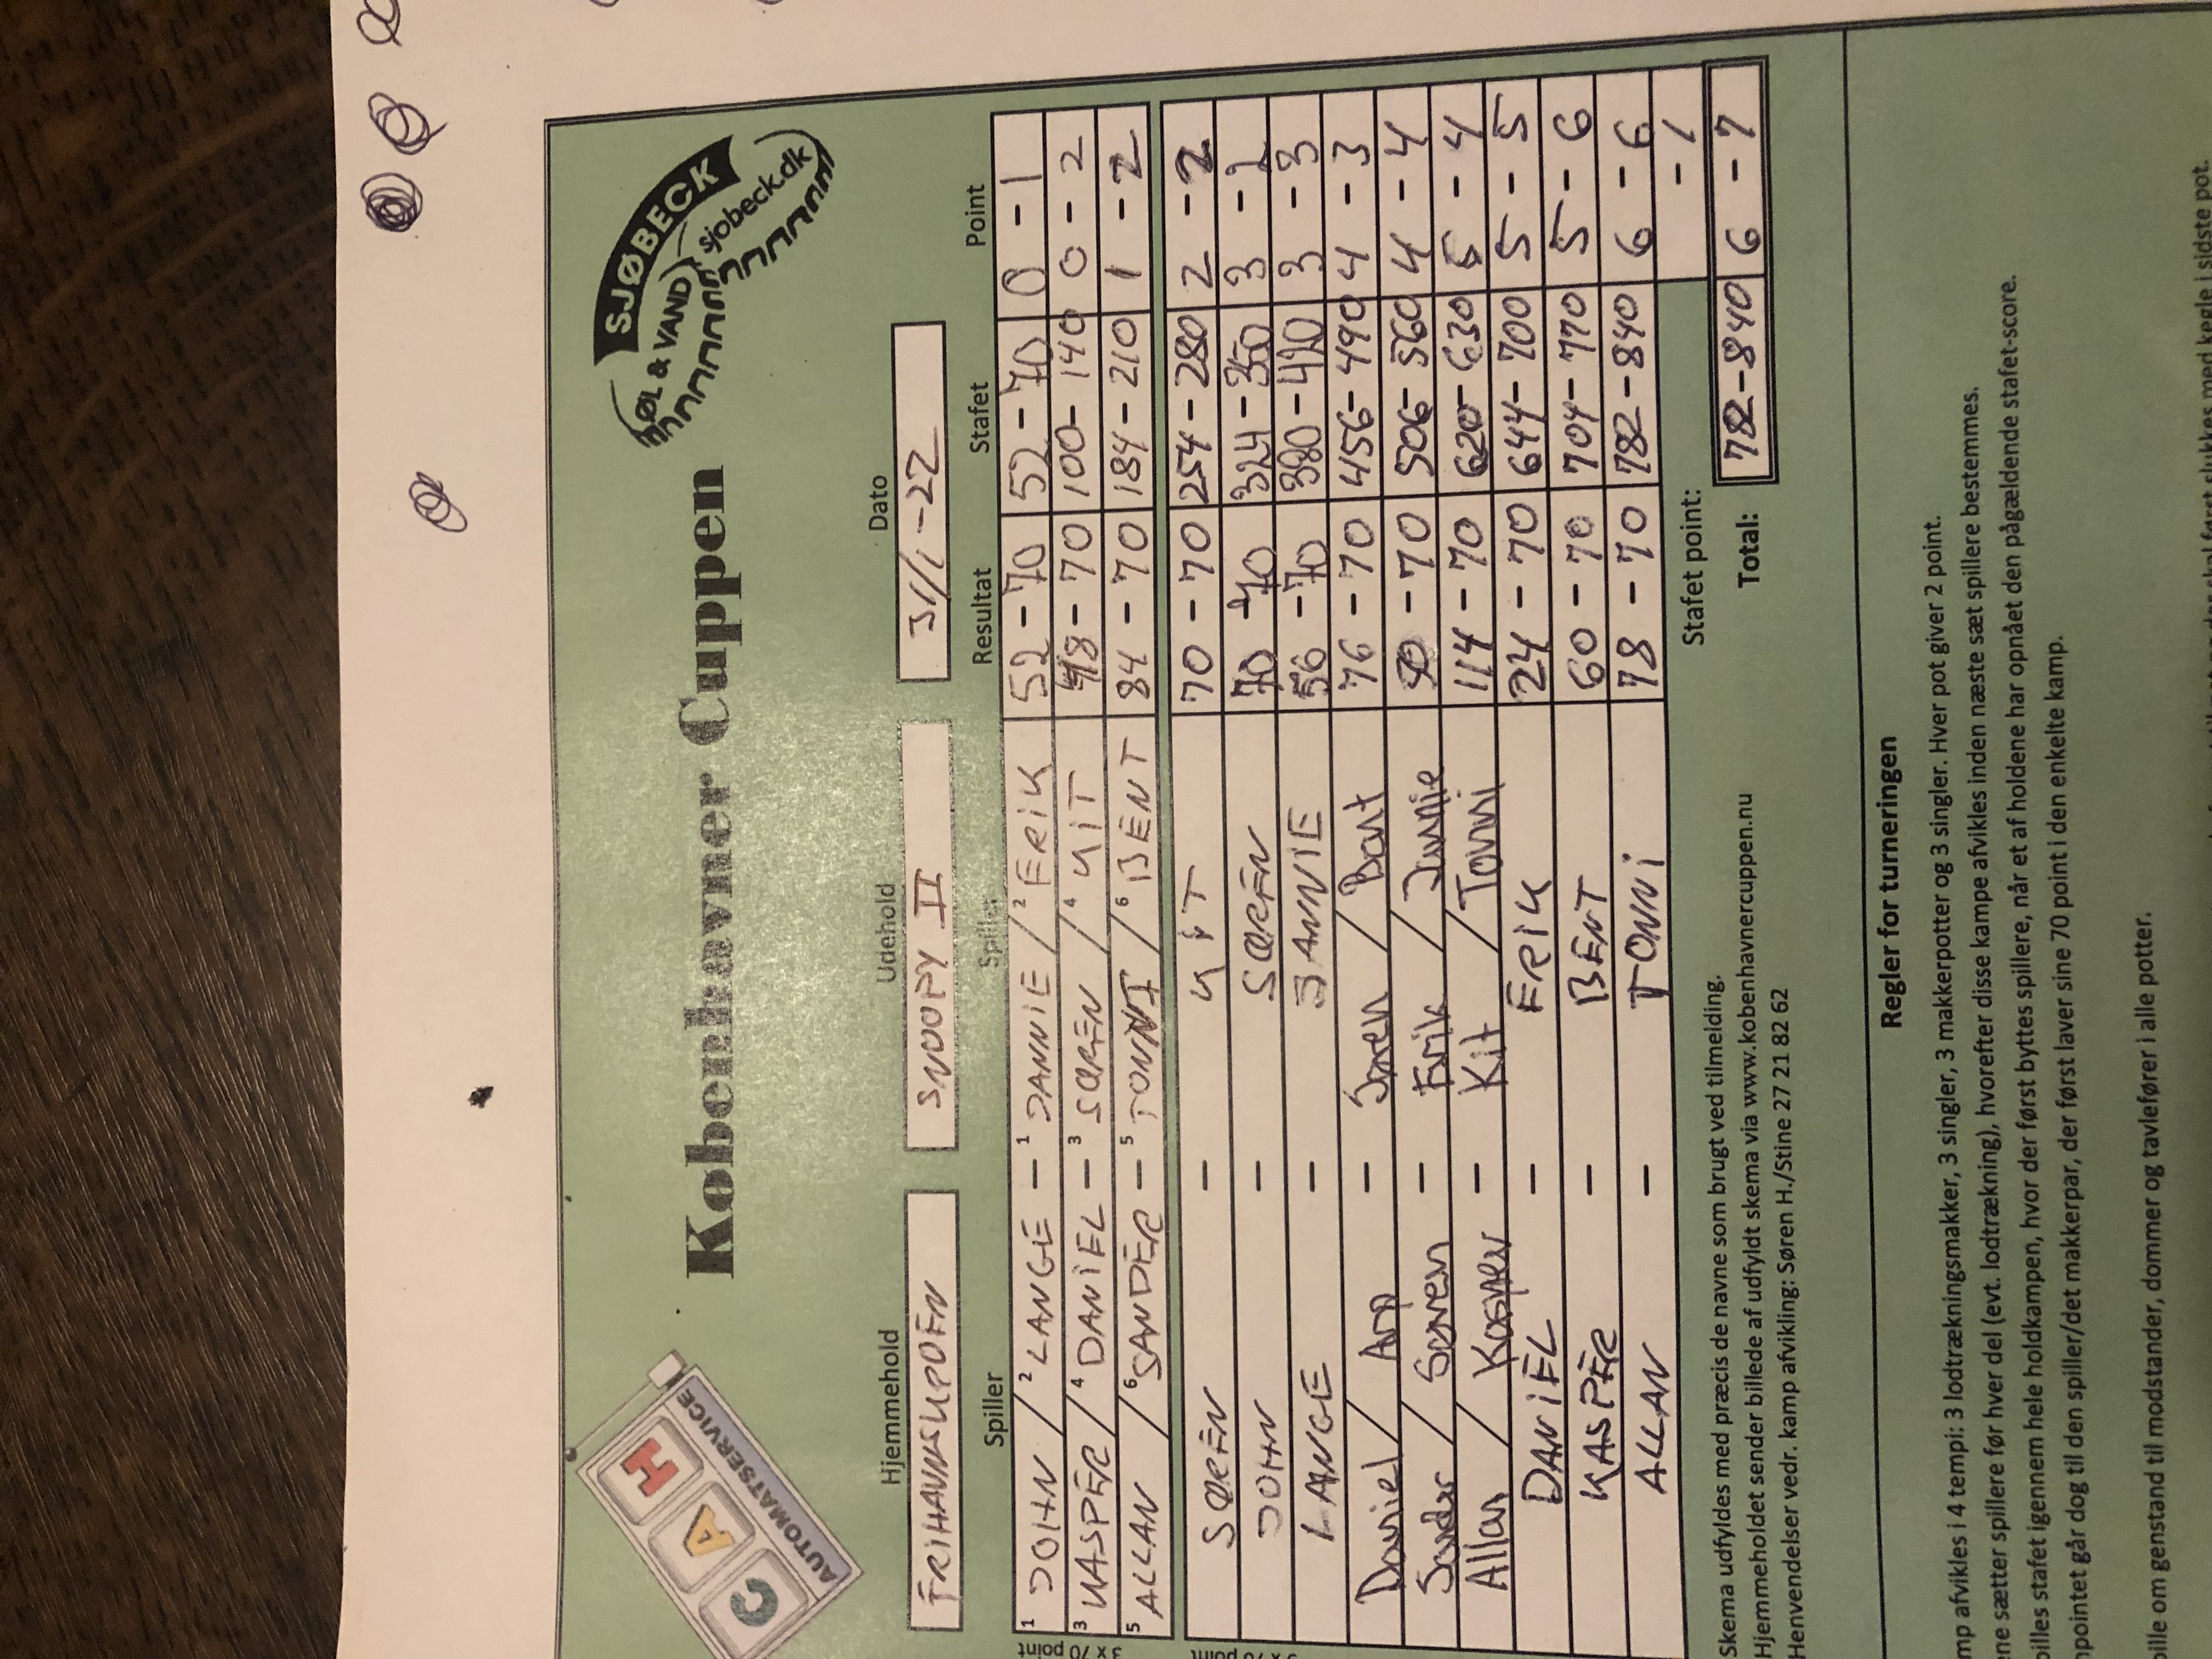 CAH
AUTOMATSERVICE
Københavner Cuppen
SJØBECK
ØL & VAND
sjobeck.dk
Hjemmehold Udehold Dato
SNOOPY II 31/1-22
Spiller Spiller Resultat Stafet Point
1 JOHN / 2 LANGE - 1 JANNIE / 2 ERIK 52 - 70 52 - 70 0 - 1
3 KASPER / 4 DANIEL - 3 SØREN / 4 KIT 48 - 70 100 - 140 0 - 2
5 ALLAN / 6 SANDER - 5 TONNI / 6 BENT 84 - 70 184 - 210 1 - 2
SØREN - KIT 70 - 70 254 - 280 2 - 2
JOHN - SØREN 70 - 70 324 - 350 3 - 2
LANGE - JANNIE 56 - 70 380 - 420 3 - 3
Daniel / Arp - Søren / Bent 76 - 70 456 - 490 4 - 3
Sander / Søren - Erik / Jannie 50 - 70 506 - 560 4 - 4
Allan / Kasper - Kit / Tonni 114 - 70 620 - 630 5 - 4
DANIEL - ERIK 24 - 70 644 - 700 5 - 5
KASPER - BENT 60 - 70 704 - 770 5 - 6
ALLAN - TONNI 78 - 70 782 - 840 6 - 6
Stafet point: - 1
Total: 782 - 840 6 - 7
Skema udfyldes med præcis de navne som brugt ved tilmelding.
Hjemmeholdet sender billede af udfyldt skema via www.kobenhavnercuppen.nu
Henvendelser vedr. kamp afvikling: Søren H./Stine 27 21 82 62
Regler for turneringen
mp afvikles i 4 tempi: 3 lodtrækningsmakker, 3 singler, 3 makkerpotter og 3 singler. Hver pot giver 2 point.
ne sætter spillere før hver del (evt. lodtrækning), hvorefter disse kampe afvikles inden næste sæt spillere bestemmes.
illes stafet igennem hele holdkampen, hvor der først byttes spillere, når et af holdene har opnået den pågældende stafet-score.
npointet går dog til den spiller/det makkerpar, der først laver sine 70 point i den enkelte kamp.
ille om genstand til modstander, dommer og tavlefører i alle potter.